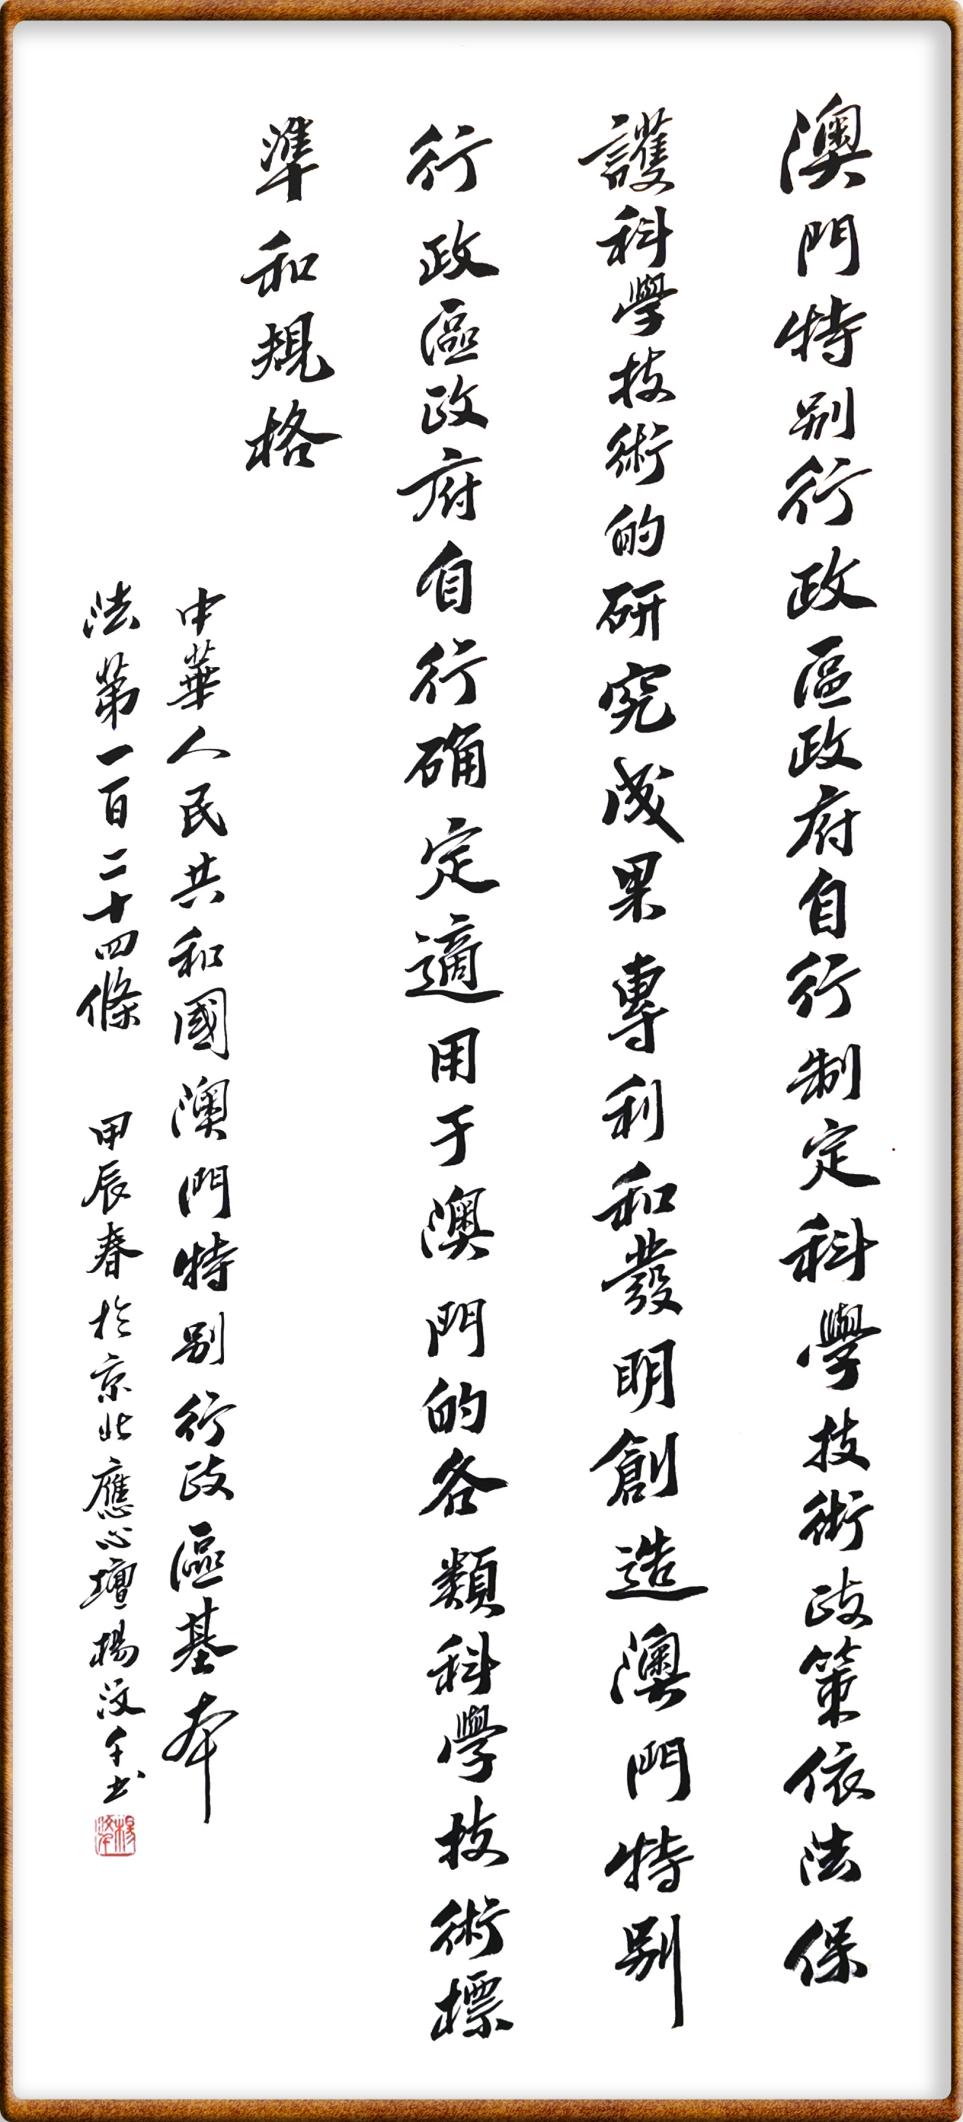 澳門特别行政區政府自行制定科學技術政策依法保
護科學技術的研究成果專利和發明創造澳門特别
行政區政府自行确定適用于澳門的各類科學技術標
準和規格
中華人民共和國澳門特别行政區基本
法第一百二十四條 甲辰春於京北應心壇楊汶千书